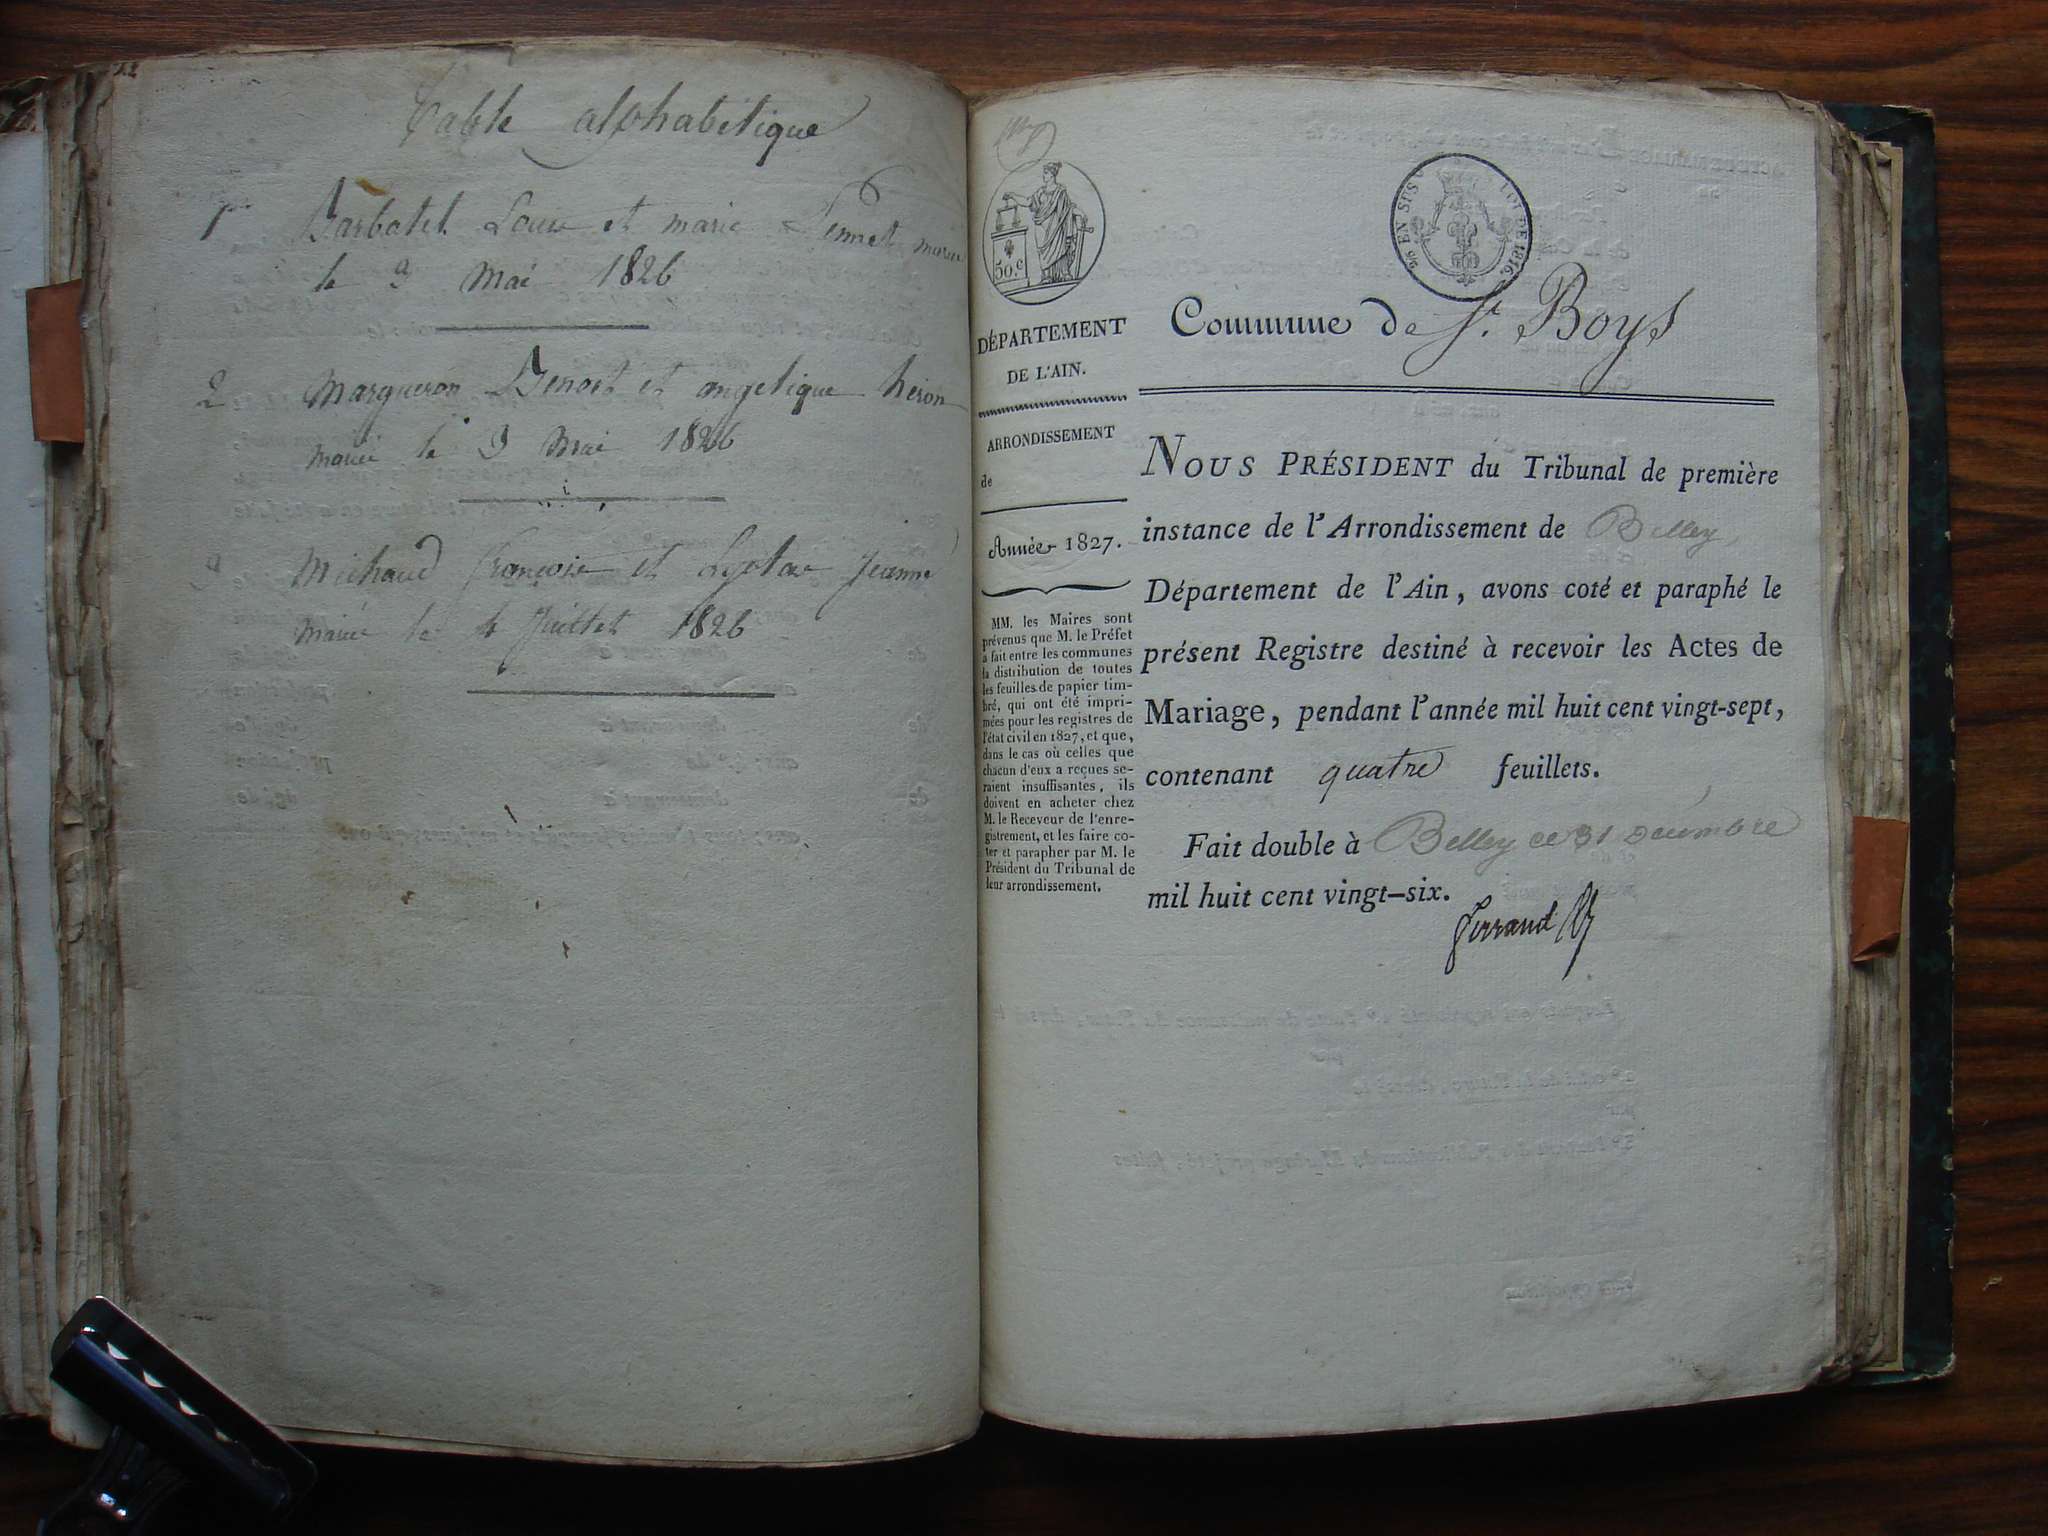 Table alphabétique
1er Barbotet Louis et marie Pennet mariés
le 9 Mai 1826
2 Margueron Benoit et angelique heron
mariés le 9 Mai 1826
3 Michaud François et Jeanne
mariés le 4 Juillet 1826
50.c
96 EN SUS LOI DE 1816.
DÉPARTEMENT
DE L'AIN.
Commune de St. Boys
ARRONDISSEMENT
de
Année 1827.
MM. les Maires sont
prévenus que M. le Préfet
a fait entre les communes
la distribution de toutes
les feuilles de papier tim-
bré, qui ont été impri-
mées pour les registres de
l'état civil en 1827, et que,
dans le cas où celles que
chacun d'eux a reçues se-
raient insuffisantes, ils
doivent en acheter chez
M. le Receveur de l'enre-
gistrement, et les faire co-
ter et parapher par M. le
Président du Tribunal de
leur arrondissement.
NOUS PRÉSIDENT du Tribunal de première
instance de l'Arrondissement de Belley
Département de l'Ain, avons coté et paraphé le
présent Registre destiné à recevoir les Actes de
Mariage, pendant l'année mil huit cent vingt-sept,
contenant quatre feuillets.
Fait double à Belley ce 31 Décembre
mil huit cent vingt-six.
Ferrand